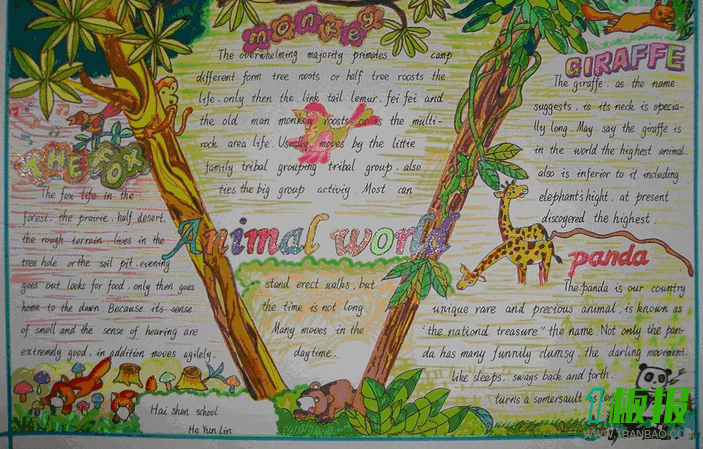 monkey
The overwhelming majority primates camp
different form tree roosts or half tree roosts the
life. only then the link tail lemur. fei fei and
the old man monkey roosts or is the multi-
rock area life. Usually moves by the little
family tribal grouping tribal group. also
ties the big group activiy. Most can
stand erect walks. but
the time is not long.
Many moves in the
daytime.
THE FOX
The fox life in the
forest. the prairie. half desert.
the rough terrain. lives in the
tree hole or the soil pit. evening
goes out looks for food. only then goes
home to the dawn Because its sense
of smell and the sense of hearing are
extremely good. in addition moves agilely.
Animal world
GIRAFFE
The giraffe. as the name
suggests. is its neck is specia-
lly long. May say the giraffe is
in the world the highest animal.
also is inferior to it including
elephant's hight. at present
discoyered the highest.
panda
The panda is our country
unique rare and precious animal. is known as
"the nationd treasure" the name. Not only the pan-
da has many funruily clumsy. the darling movement.
like sleeps. sways back and forth.
turns a somersault
Hai shan school
He Yun Lin
1板报
WWW.1BANBAO.COM